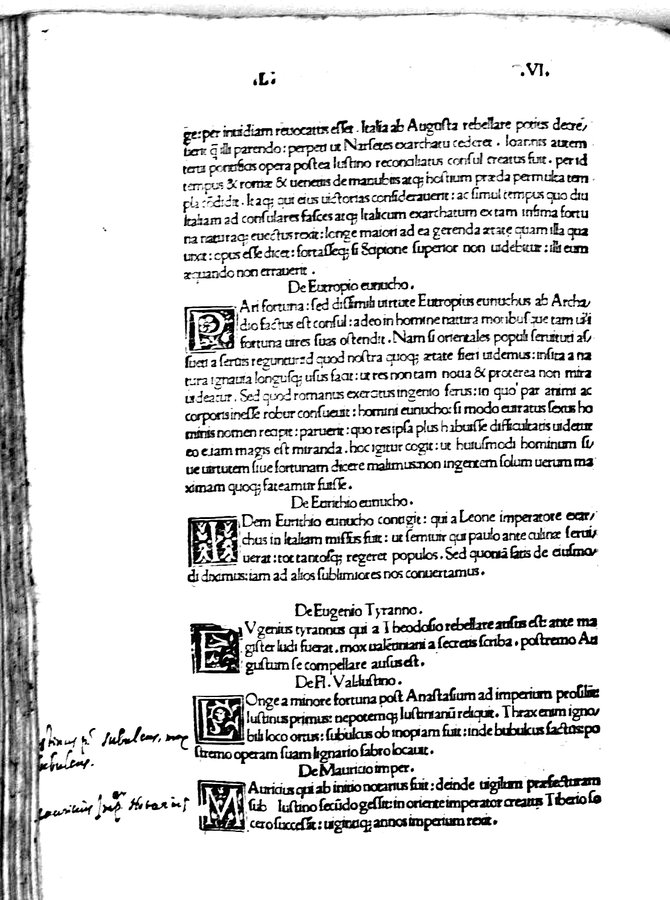 .L. .VI.
ge: per inuidiam reuocatus esset. Italia ab Augusta rebellare poties decre/
uerit q̃ illi parendo: perpeti ut Narsetes exarchatu cederet. Ioannis autem
tertii pontificis opera postea Iustino reconciliatus consul creatus fuit. per id
tempus & romæ & uenetiis de manubiis atq; hostium præda permulta tem
pla edidit. Itaq; qui eius uictorias considerauerit: ac simul tempus quo diu
Italiam ad consulares fasces atq; Italicum exarchatum ex tam infima fortu
na naturaq; euectus rexit: longe maiori ad ea gerenda ætate quam illa qua
uixit: opus esse dicet: fortasseq; si Scipione superior non uidebitur: illi eum
æquando non errauerit.
De Eutropio eunucho.
PAri fortuna: sed dissimili uirtute Eutropius eunuchus ab Archa/
dio factus est consul: adeo in homine natura moribusque tam uili
fortuna uires suas ostendit. Nam si orientales populi seruituti as/
sueti a seruis reguntur: id quod nostra quoq; ætate fieri uidemus: insita a na
tura ignauia longusq; usus facit: ut res non tam noua & proterea non mira
uideatur. Sed quod romanus exercitus ingenio ferus: in quo par animi ac
corporis inesse robur consueuit: homini eunucho: si modo euiratus sexus ho
minis nomen recipit: paruerit: quo res ipsa plus habuisse difficultatis uidetur
eo etiam magis est miranda. hoc igitur cogit: ut huiusmodi hominum si/
ue uirtutem siue fortunam dicere malimus: non ingentem solum uerum ma
ximam quoq; fateamur fuisse.
De Eutichio eunucho.
IDem Eutichio eunucho contigit: qui a Leone imperatore exar/
chus in Italiam missus fuit: ut seruitur qui paulo ante culinæ serui/
uerat: tot tantosq; regeret populos. Sed quoniã satis de eiusmo/
di diximus: iam ad alios sublimiores nos conuertamus.
De Eugenio Tyranno.
EVgenius tyrannus qui a Theodosio rebellare ausus est: ante ma
gister ludi fuerat, mox ualentiniani a secretis scriba. postremo Au
gustum se compellare ausus est.
De Fl. Val. Iustino.
LOnge a minore fortuna post Anastasium ad imperium prosiliit
Iustinus primus: nepotemq; Iustinianũ reliquit. Thrax enim igno/
bili loco ortus: subulcus ob inopiam fuit: inde bubulcus factus: po
stremo operam suam lignario fabro locauit.
stinus pº subulcus, mox
bubulcus.
De Mauricio imper.
MAuricius qui ab initio notarius fuit: deinde uigilum præfecturam
sub Iustino secũdo gessit: in oriente imperator creatus Tiberio so
cero successit: uigintiq; annos imperium rexit.
Mauricius Impr Notarius